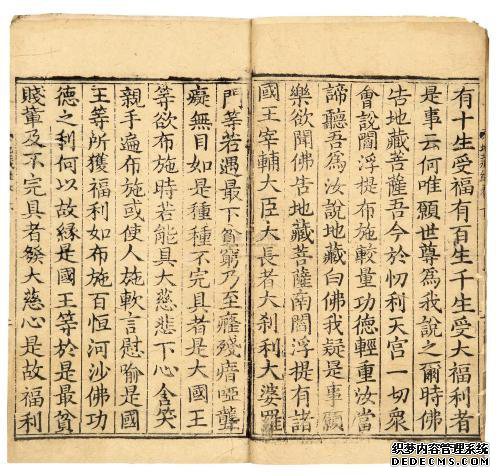 有十生受福有百生千生受大福利者
是事云何唯願世尊為我說之爾時佛
告地藏菩薩吾今於忉利天宮一切眾
會說閻浮提布施較量功德輕重汝當
諦聽吾為汝說地藏白佛我疑是事願
樂欲聞佛告地藏菩薩南閻浮提有諸
國王宰輔大臣大長者大剎利大婆羅
門等若遇最下貧窮乃至癃殘瘖啞聾
癡無目如是種種不完具者是大國王
等欲布施時若能具大慈悲下心含笑
親手遍布施或使人施軟言慰喻是國
王等所獲福利如布施百恒河沙佛功
德之利何以故緣是國王等於是最貧
賤輩及不完具者發大慈心是故福利
织梦内容管理系统
DEDECMS.COM